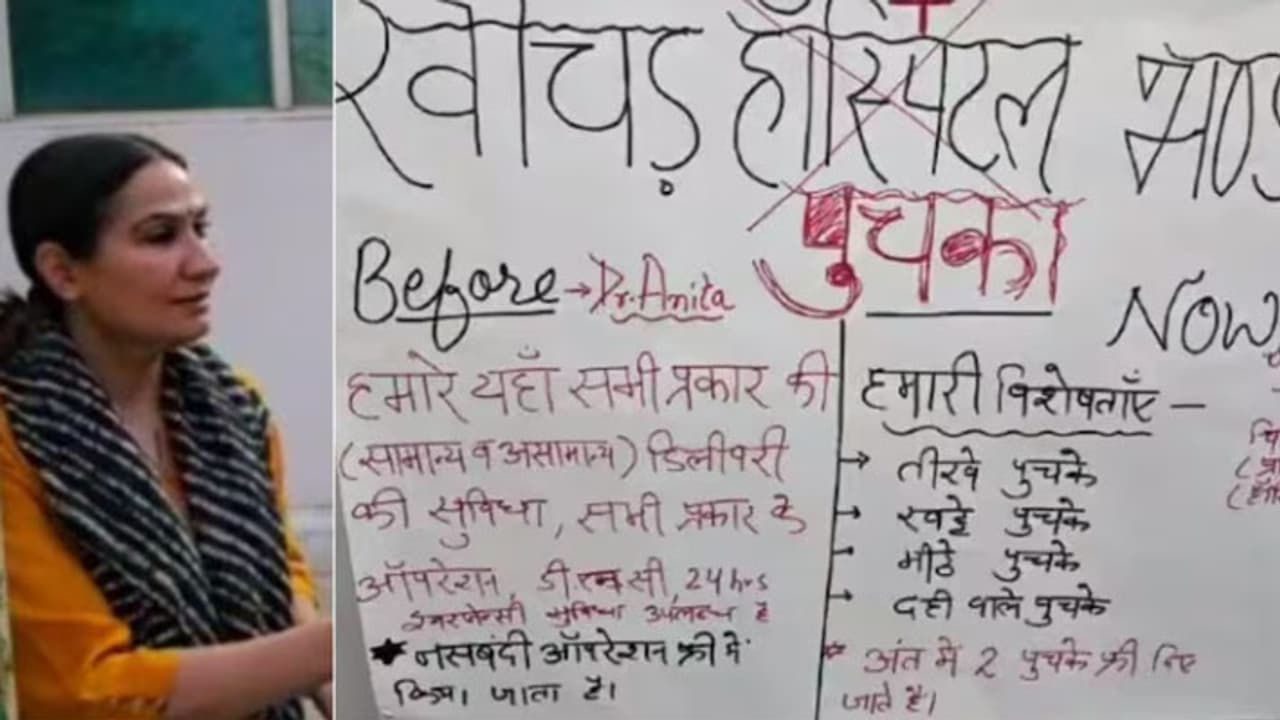 खीचड़ हॉस्पिटल
पुचका
Before → Dr. Anita
Now
हमारे यहाँ सभी प्रकार की
(सामान्य व असामान्य) डिलीवरी
की सुविधा, सभी प्रकार के
ऑपरेशन, डी एन सी, 24 hrs
इमरजेन्सी सुविधा उपलब्ध है
★ नसबंदी ऑपरेशन फ्री में
किया जाता है।
हमारी विशेषताएँ –
→ तीखे पुचके
→ खट्टे पुचके
→ मीठे पुचके
→ दही वाले पुचके
* अंत में 2 पुचके फ्री दिए
जाते है।